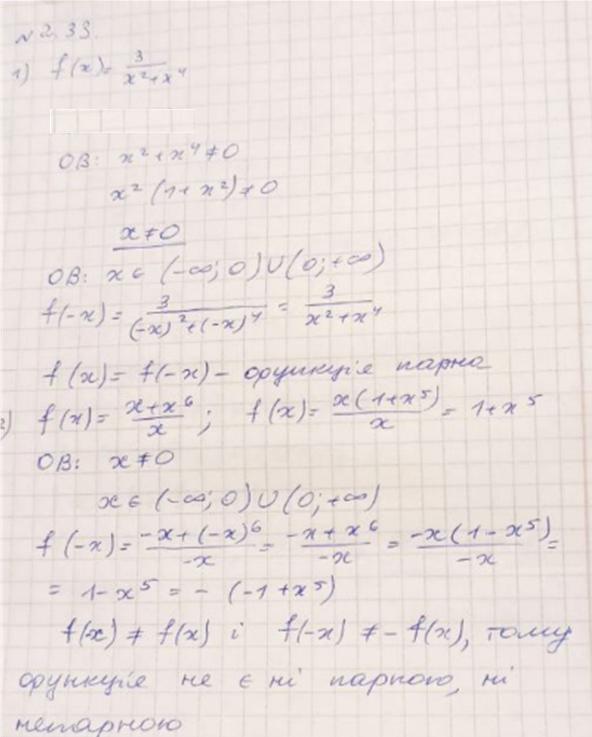 №2.33.
1) f(x)= 3/(x²+x⁴)
ОВ: x²+x⁴≠0
x²(1+x²)≠0
x≠0
ОВ: x∈(-∞; 0)∪(0; +∞)
f(-x)= 3/((-x)²+(-x)⁴) = 3/(x²+x⁴)
f(x)= f(-x) – функція парна
2) f(x)= (x+x⁶)/x; f(x)= x(1+x⁵)/x = 1+x⁵
ОВ: x≠0
x∈(-∞; 0)∪(0; +∞)
f(-x)= (-x+(-x)⁶)/(-x) = (-x+x⁶)/(-x) = -x(1-x⁵)/(-x) =
= 1-x⁵ = -(-1+x⁵)
f(x)≠f(x) і f(-x)≠-f(x), тому
функція не є ні парною, ні
непарною